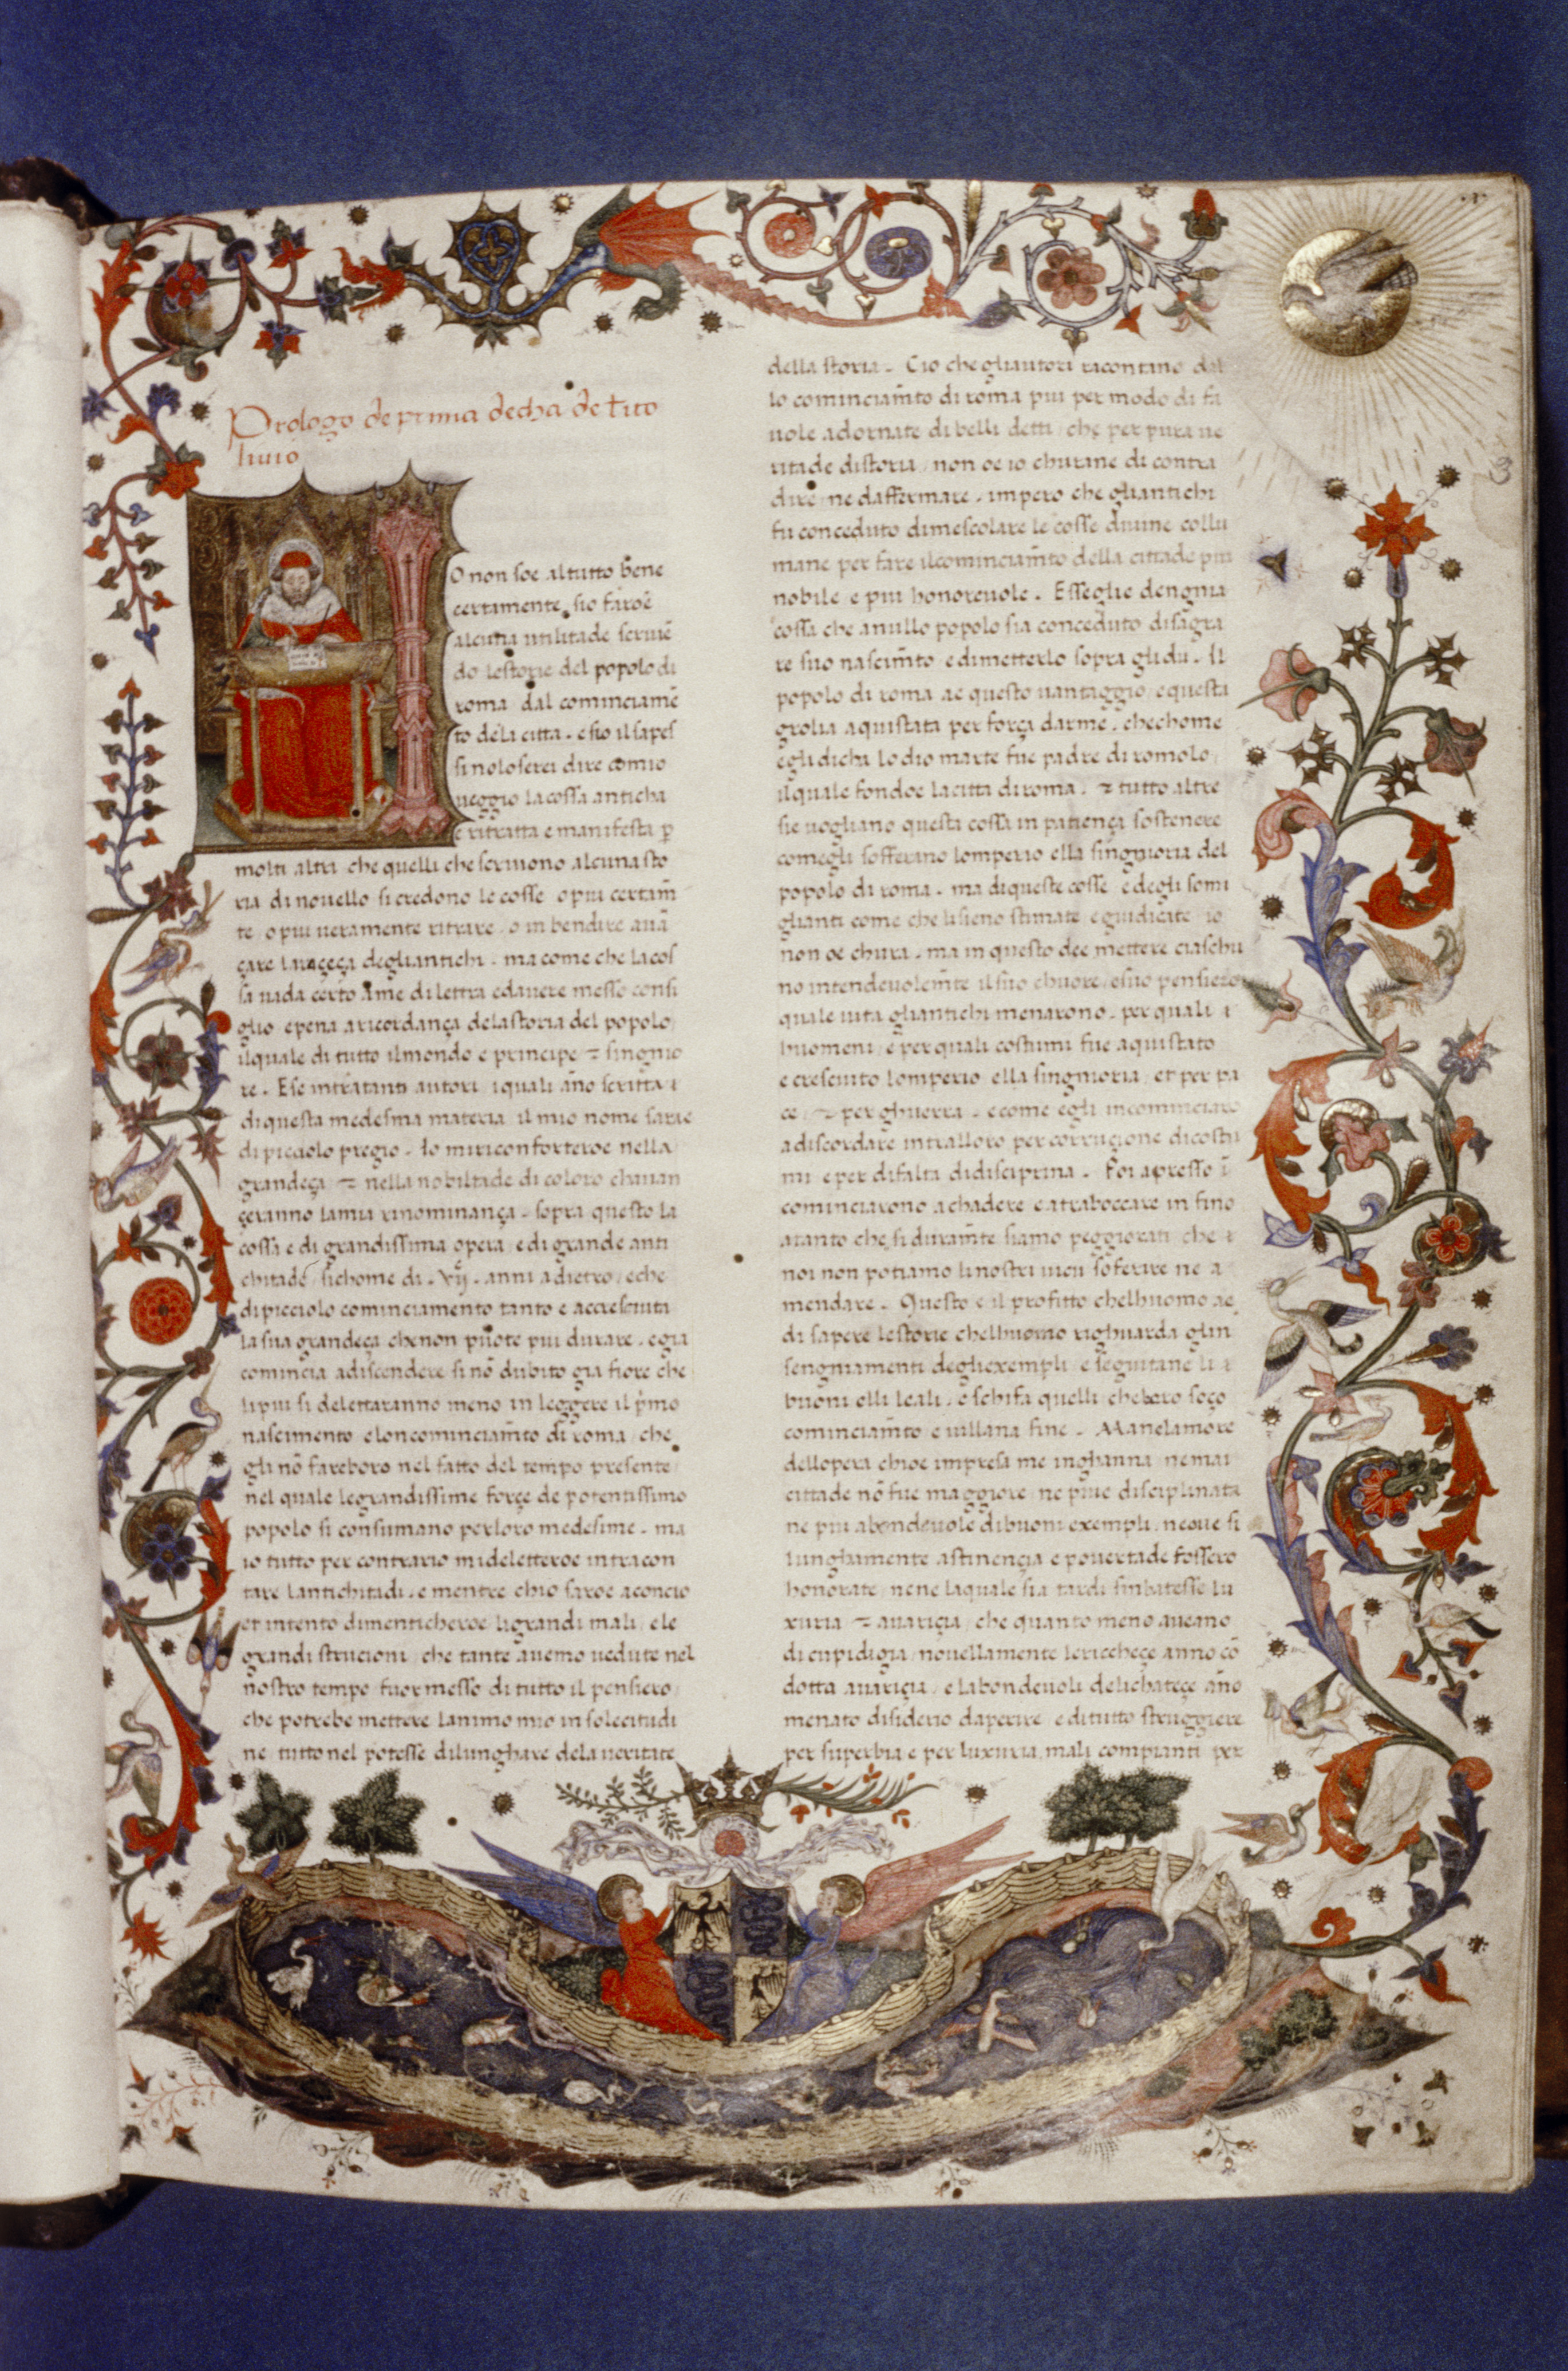 Prologo de prima decha de Tito
liuio
O non soe al tutto bene
certamente sio faroe
alcuna utilitade scriuē
do lestorie del popolo di
roma dal cominciamē
to dela citta . e sio il sapes
si nolo serei dire comio
ueggio la cossa anticha
e ritratta e manifesta ꝑ
molti altri che quelli che scriuono alcuna sto
ria di nouello si credono le cosse o piu certam̄
te o piu ueramente ritrare o in bendire auā
çare la roçeça degliantichi . ma come che la cos
sa uada certo ame diletta edauere messo consi
glio epena aricordança dela storia del popolo
ilquale di tutto ilmondo e principe ⁊ singnio
re . E se intratanti autori iquali āno scritta
di questa medesma materia il mio nome sarae
di picciolo pregio . Io miriconforteroe nella
grandeça ⁊ nella nobiltade di coloro chauan
çeranno lamia rinominança . sopra questo la
cossa e di grandissima opera e di grande anti
chitade sichome di . vij . anni adietro eche
di picciolo cominciamento tanto e accresciuta
la sua grandeça chenon puote piu durare . egia
comincia adiscendere si nō dubito gia fiore che
li piu si deletteranno meno in leggere il pmo
nascimento eloncominciam̄to di roma che
gli nō fareboro nel fatto del tempo presente
nel quale legrandissime forçe de potentissimo
popolo si consumano perloro medesime . ma
io tutto per contrario mideletteroe intracon
tare lantichitadi . e mentre chio saroe aconcio
et intento dimenticheroe ligrandi mali ele
grandi strucioni che tante auemo uedute nel
nostro tempo fuormesso di tutto il pensiero
che potrebe mettere lanimo mio in solecitudi
ne tutto nel potesse dilunghare dela ueritate
della storia . Cio che gliautori racontano dal
lo cominciam̄to di roma piu per modo di fa
uole adornate di belli detti che per pura ue
ritade distoria non oe io churane di contra
dire ne daffermare . impero che gliantichi
fu conceduto dimescolare le cosse diuine collu
mane per fare ilcominciam̄to della cittade piu
nobile e piu honoreuole . Esseglie dengnia
cossa che anullo popolo sia conceduto disagra
re suo nascim̄to edimetterlo sopra glidii . Il
popolo di roma ae questo uantaggio equesta
grolia aquistata per força darme . chechome
egli dicha lo dio marte fue padre di romolo
ilquale fondoe lacitta di roma . ⁊ tutto altre
sie uogliano questa cossa in patiença sostenere
comegli sofferano lomperio ella singnioria del
popolo di roma . ma diqueste cosse edegli somi
glianti come che lisieno stimate eguidicate io
non oe chura . ma in questo dee mettere ciaschu
no intendeuolem̄te il suo chuore esuo pensiero
quale uita gliantichi menarono . per quali
huomeni e per quali costumi fue aquistato
e cresciuto lomperio ella singnioria et per pa
ce ⁊ per ghuerra . ecome egli incominciaro
adiscordare intralloro per corruçione dicostu
mi e per difalta didisciprina . Poi apresso ī
cominciarono achadere eatraboccare in fino
atanto che si duram̄te siamo peggiorati che
noi non potiamo li nostri uicii soferire ne a
mendare . Questo e il profitto chelhuomo ae
di sapere lestorie chelhuomo righuarda glin
sengniamenti degliexempli e seguitane li
buoni elli leali . e schifa quelli cheboro soço
cominciam̄to e uillana fine . Ma nelamore
dellopera chioe impresa me inghanna nemai
cittade nō fue maggiore ne piue disciplinata
ne piu abondeuole dibuoni exempli . neoue si
lunghamente astinencia e pouertade fossero
honorate ne ne laquale sia tardi sinbatesse lu
xuria ⁊ auariçia che quanto meno aueano
di cupidigia nouellamente lericcheçe anno cō
dotta auariçia e labondeuoli delichateçe āno
menato disiderio daperire editutto struggiere
per superbia e per luxuria . mali compianti per